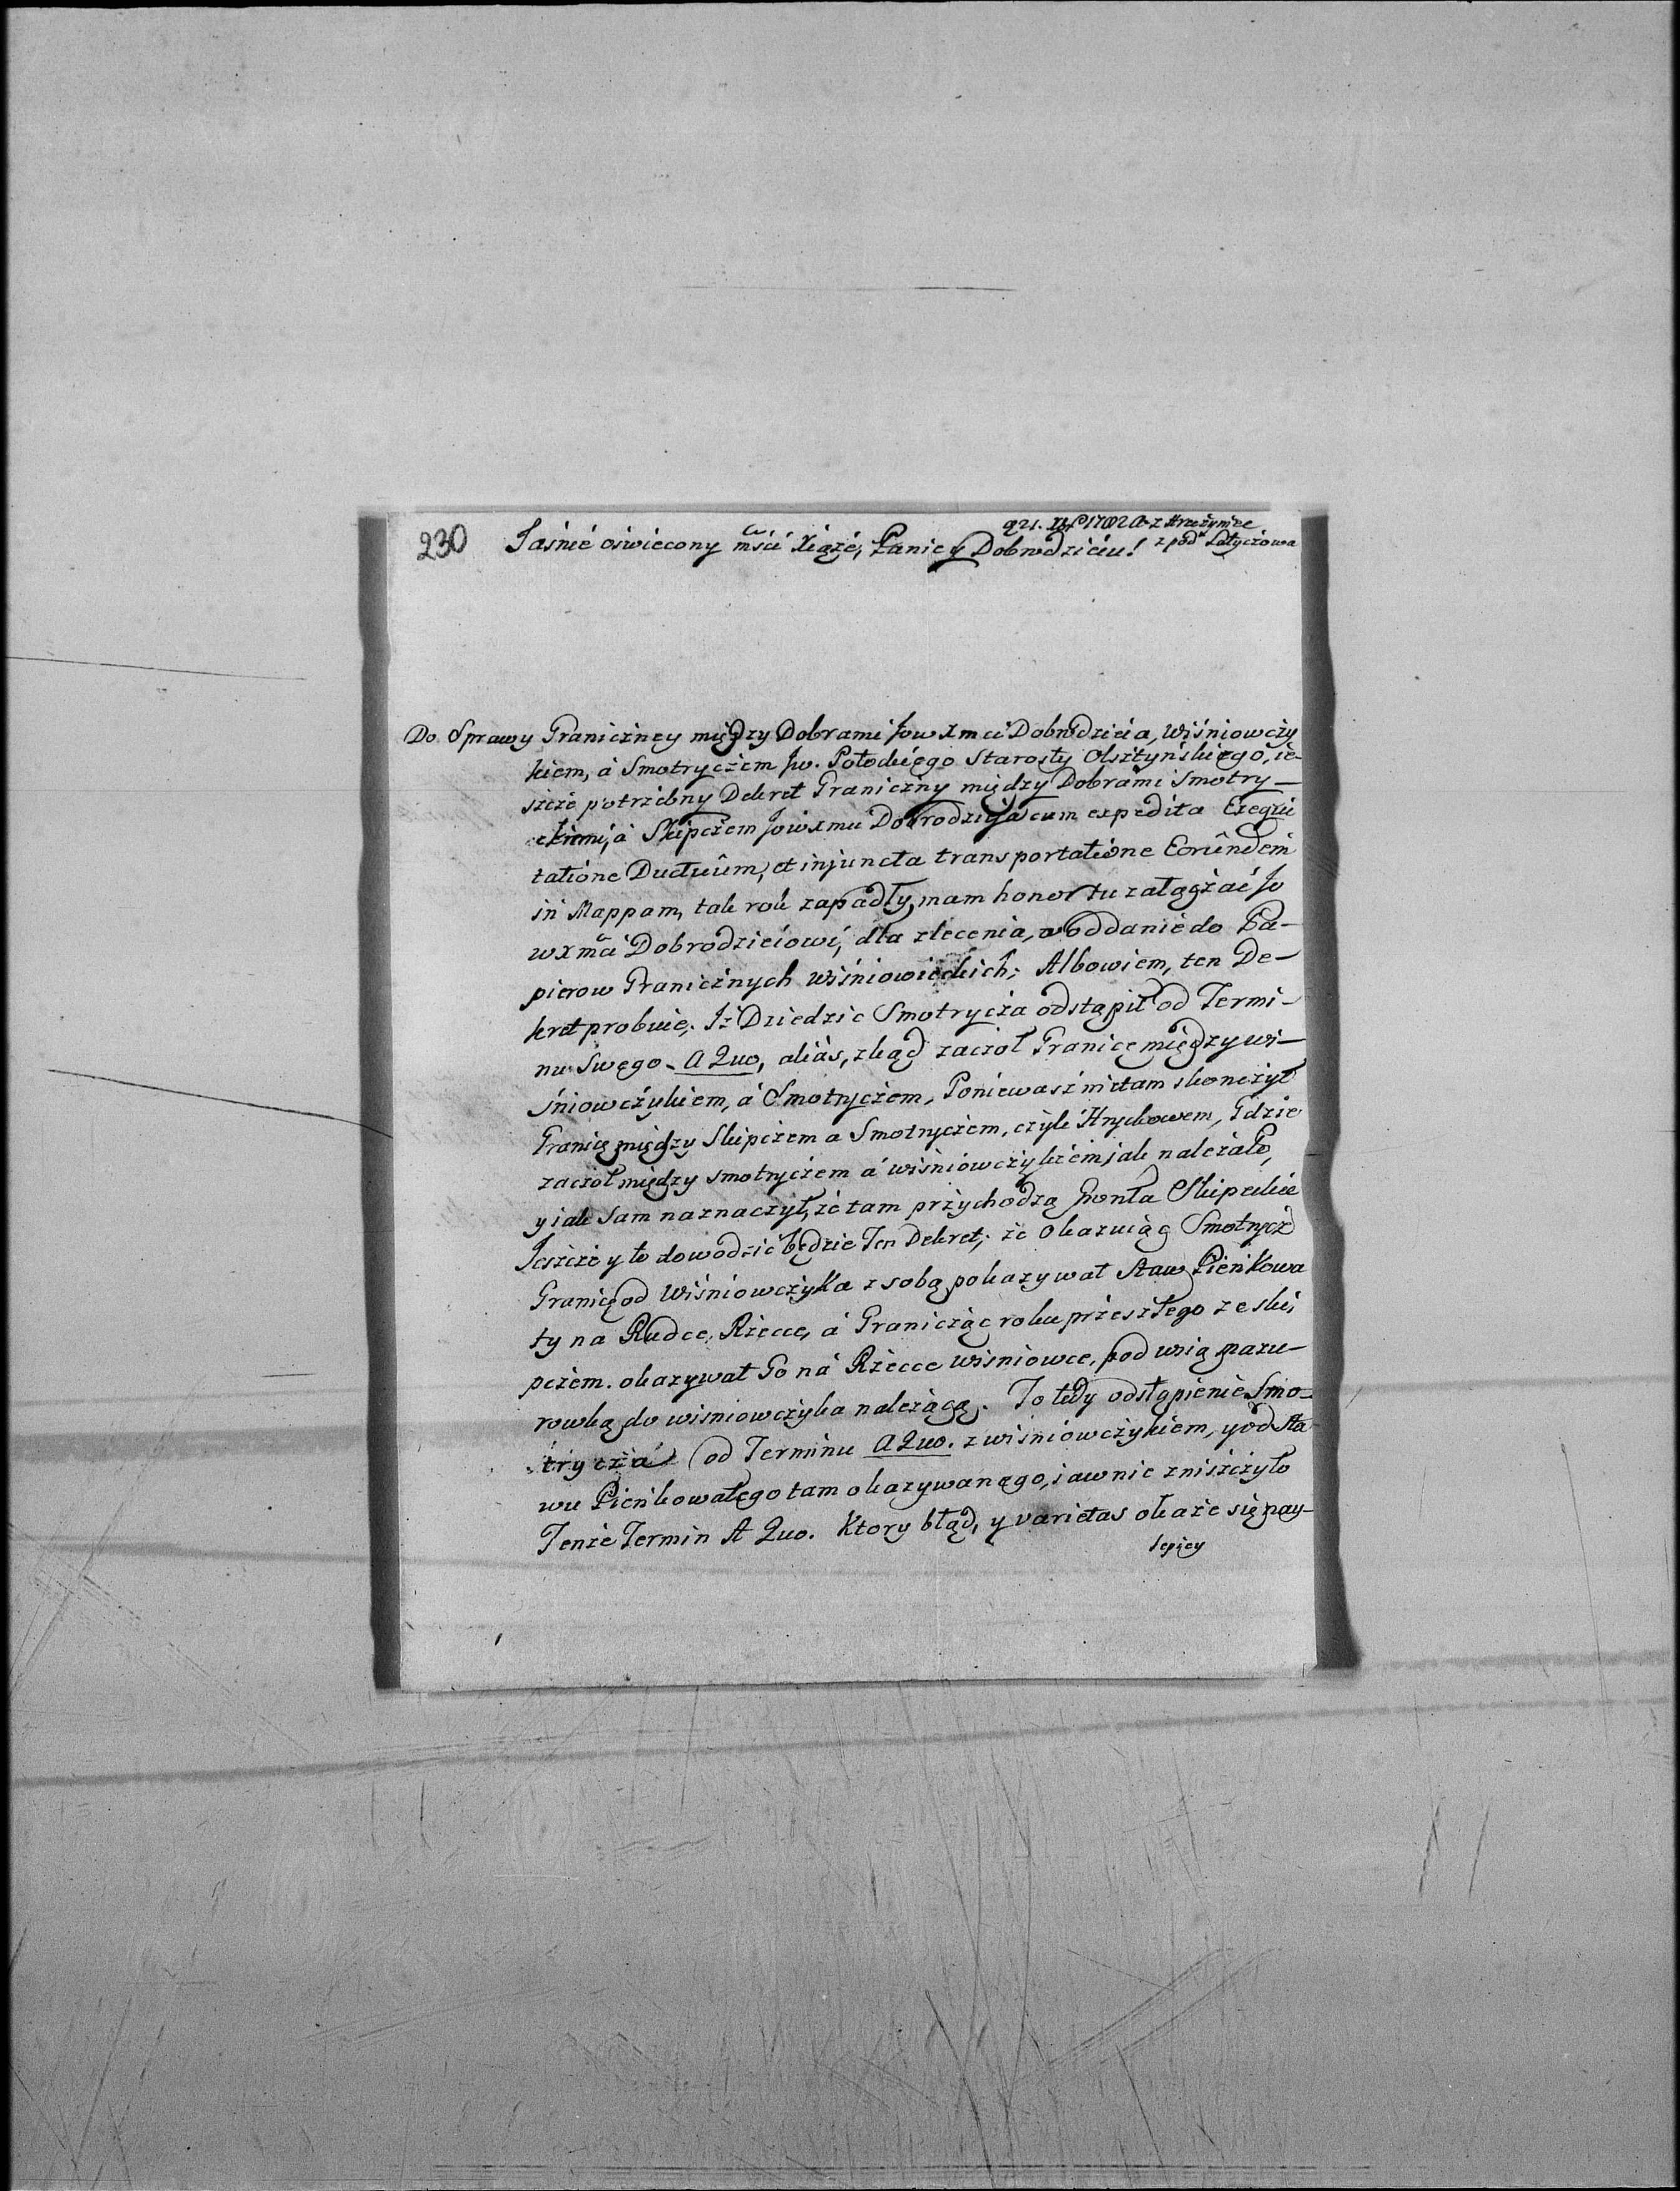 230
z Hruszyniec
z pod Latyczowa
Jaśnie oswiecony mści Xiąże, Panie y Dobrodzieiu!
Do Sprawy Graniczney między Dobrami Jowxmci Dobrodzieia, Wiśniowczy
kiem, á Smotryczem Jw. Potockiego Starosty Olsztyńskiego, ie-
szcze potrzebny Dekret Graniczny między Dobrami Smotry-
ckiemi, á Skipczem Jowxmu Dobrodzieia cum expedita Exequi
tatione Ductuûm, et injuncta transportatione Eorûndem
in Mappam, tak rok zapadły, mam honor tu załączać Jo
wxmci Dobrodzieiowi, dla zlecenia, o oddanie do Pa-
pierow Granicznych Wiśniowieckich; Albowiem, ten De-
kret probuie, Iż Dziedzic Smotrycza odstąpił od Termi-
nu Swego A Quo, aliàs, zkąd zaczoł Granicę między Wi-
śniowczykiem, á Smotryczem, Poniewasz nie tam skonczył
Granicę między Skipczem a Smotryczem, czyli Hryckowem, Gdzie
zaczoł między Smotryczem á wiśniowczykiem, jak należało,
y iak sam naznaczył, że tam przychodzą Gronta Skipeckie
Jeszcze y to dowodzić będzie Ten Dekret, że Okazuiąc Smotrycz
Granicę od Wiśniowczyka z sobą, pokazywał Staw Pieńkowa
ty na Rudce, Rzecce, á Granicząc roku przeszłego ze Ski,
pczem. okazywał Go ná Rzecce wiśniowce, pod wsią Mazu-
rowką do wisniowczyka należącą. To tedy odstąpienie Smo-
trycza od Terminu A Quo. z wiśniowczykiem, y od Sta
wu Pieńkowatego tam okazywanego, iawnie zniszczyło
Tenże Termin A Quo. Ktory błąd, y varietas okaże się nay-
lepiey